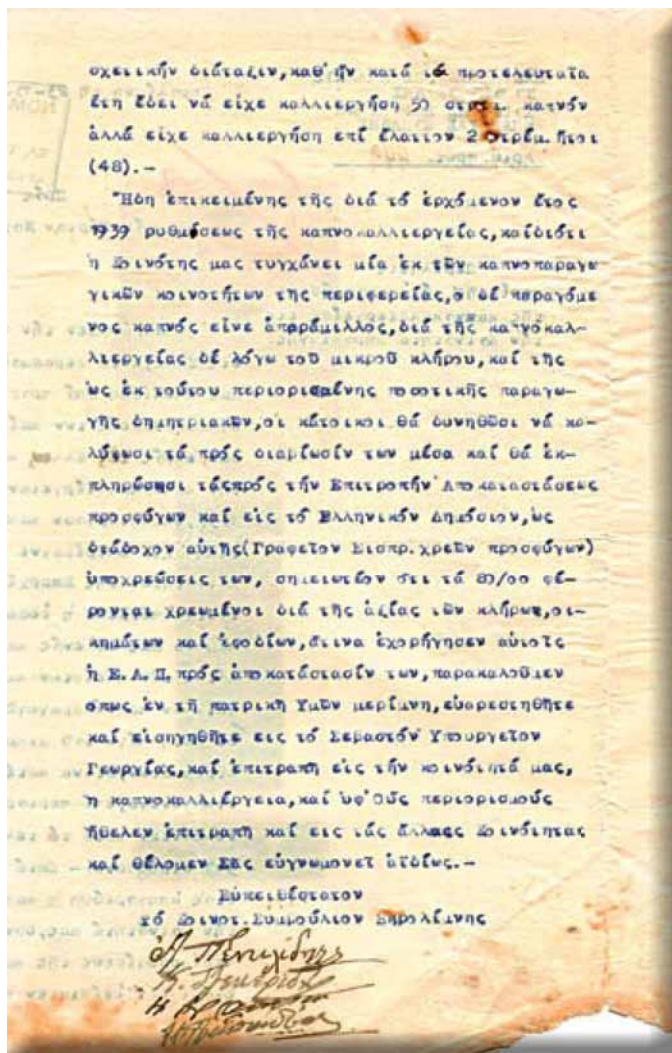 σχετικήν διάταξιν,καθ'ήν κατά τά προτελευταῖα
ἔτη ἔδει νά εἶχε καλλιεργήση 50 στρέμ. καπνόν
ἀλλά εἶχε καλλιεργήση ἐπί ἔλαττον 2 στρέμ.ἤτοι
(48).-
Ἤδη ἐπικειμένης τῆς διά τό ἐρχόμενον ἔτος
1939 ρυθμίσεως τῆς καπνοκαλλιεργείας,καίδιότι
ἡ Κοινότης μας τυγχάνει μία ἐκ τῶν καπνοπαραγω
γικῶν κοινοτήτων τῆς περιφερείας,ὁ δέ παραγόμε
νος καπνός εἶνε ἀπαράμιλλος,διά τῆς καπνοκαλ-
λιεργείας δέ λόγω τοῦ μικροῦ κλήρου,καί τῆς
ὡς ἐκ τούτου περιορισμένης ποσοτικῆς παραγω-
γῆς δημητριακῶν,οἱ κάτοικοι θά δυνηθῶσι νά κα-
λύψωσι τά πρός διαβίωσίν των μέσα καί θά ἐκ-
πληρώσωσι τάςπρός τήν Ἐπιτροπήν Ἀποκαταστάσεως
προσφύγων καί εἰς τό Ἑλληνικόν Δημόσιον,ὡς
διάδοχον αὐτῆς(Γραφεῖον Εἰσπρ.χρεῶν προσφύγων)
ὑποχρεώσεις των, σημειωτέον ὅτι τά 80/00 φέ-
ρονται χρεωμένοι διά τῆς ἀξίας τῶν κλήρων,οἰ-
κημάτων καί ἐφοδίων,ἅτινα ἐχορήγησεν αὐτοῖς
ἡ Ε.Α.Π. πρός ἀποκατάστασίν των,παρακαλοῦμεν
ὅπως ἐν τῆ πατρικῆ Ὑμῶν μερίμνη,εὐαρεστηθῆτε
καί εἰσηγηθῆτε εἰς τό Σεβαστόν Ὑπουργεῖον
Γεωργίας,καί ἐπιτραπῆ εἰς τήν κοινότητά μας,
ἡ καπνοκαλλιέργεια,καί ὑφ'οὕς περιορισμούς
ἤθελεν ἐπιτραπῆ καί εἰς τάς ἄλλας Κοινότητας
καί θέλομεν Σᾶς εὐγνωμονεῖ ἀϊδίως.-
Εὐπειθέστατον
τό Κοινοτ.Συμβούλιον Ξηρολίμνης